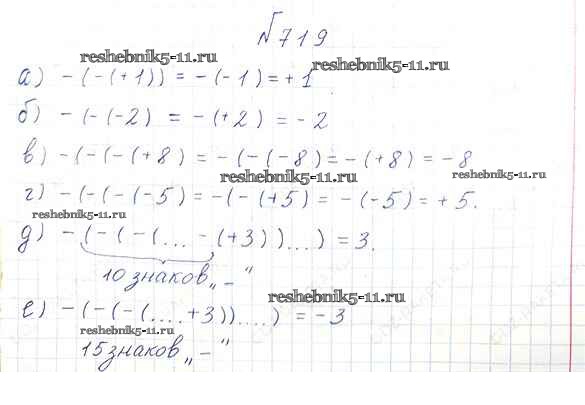 №719
reshebnik5-11.ru
reshebnik5-11.ru
а) -(-(+1)) = -(-1) = +1
б) -(-(-2) = -(+2) = -2
в) -(-(-(+8) = -(-(-8) = -(+8) = -8
reshebnik5-11.ru
г) -(-(-(-5) = -(-(+5) = -(-5) = +5.
reshebnik5-11.ru
д) -(-(-(... -(+3))...) = 3.
10 знаков „-“
reshebnik5-11.ru
е) -(-(-(....+3))....) = -3
reshebnik5-11.ru
15 знаков „-“